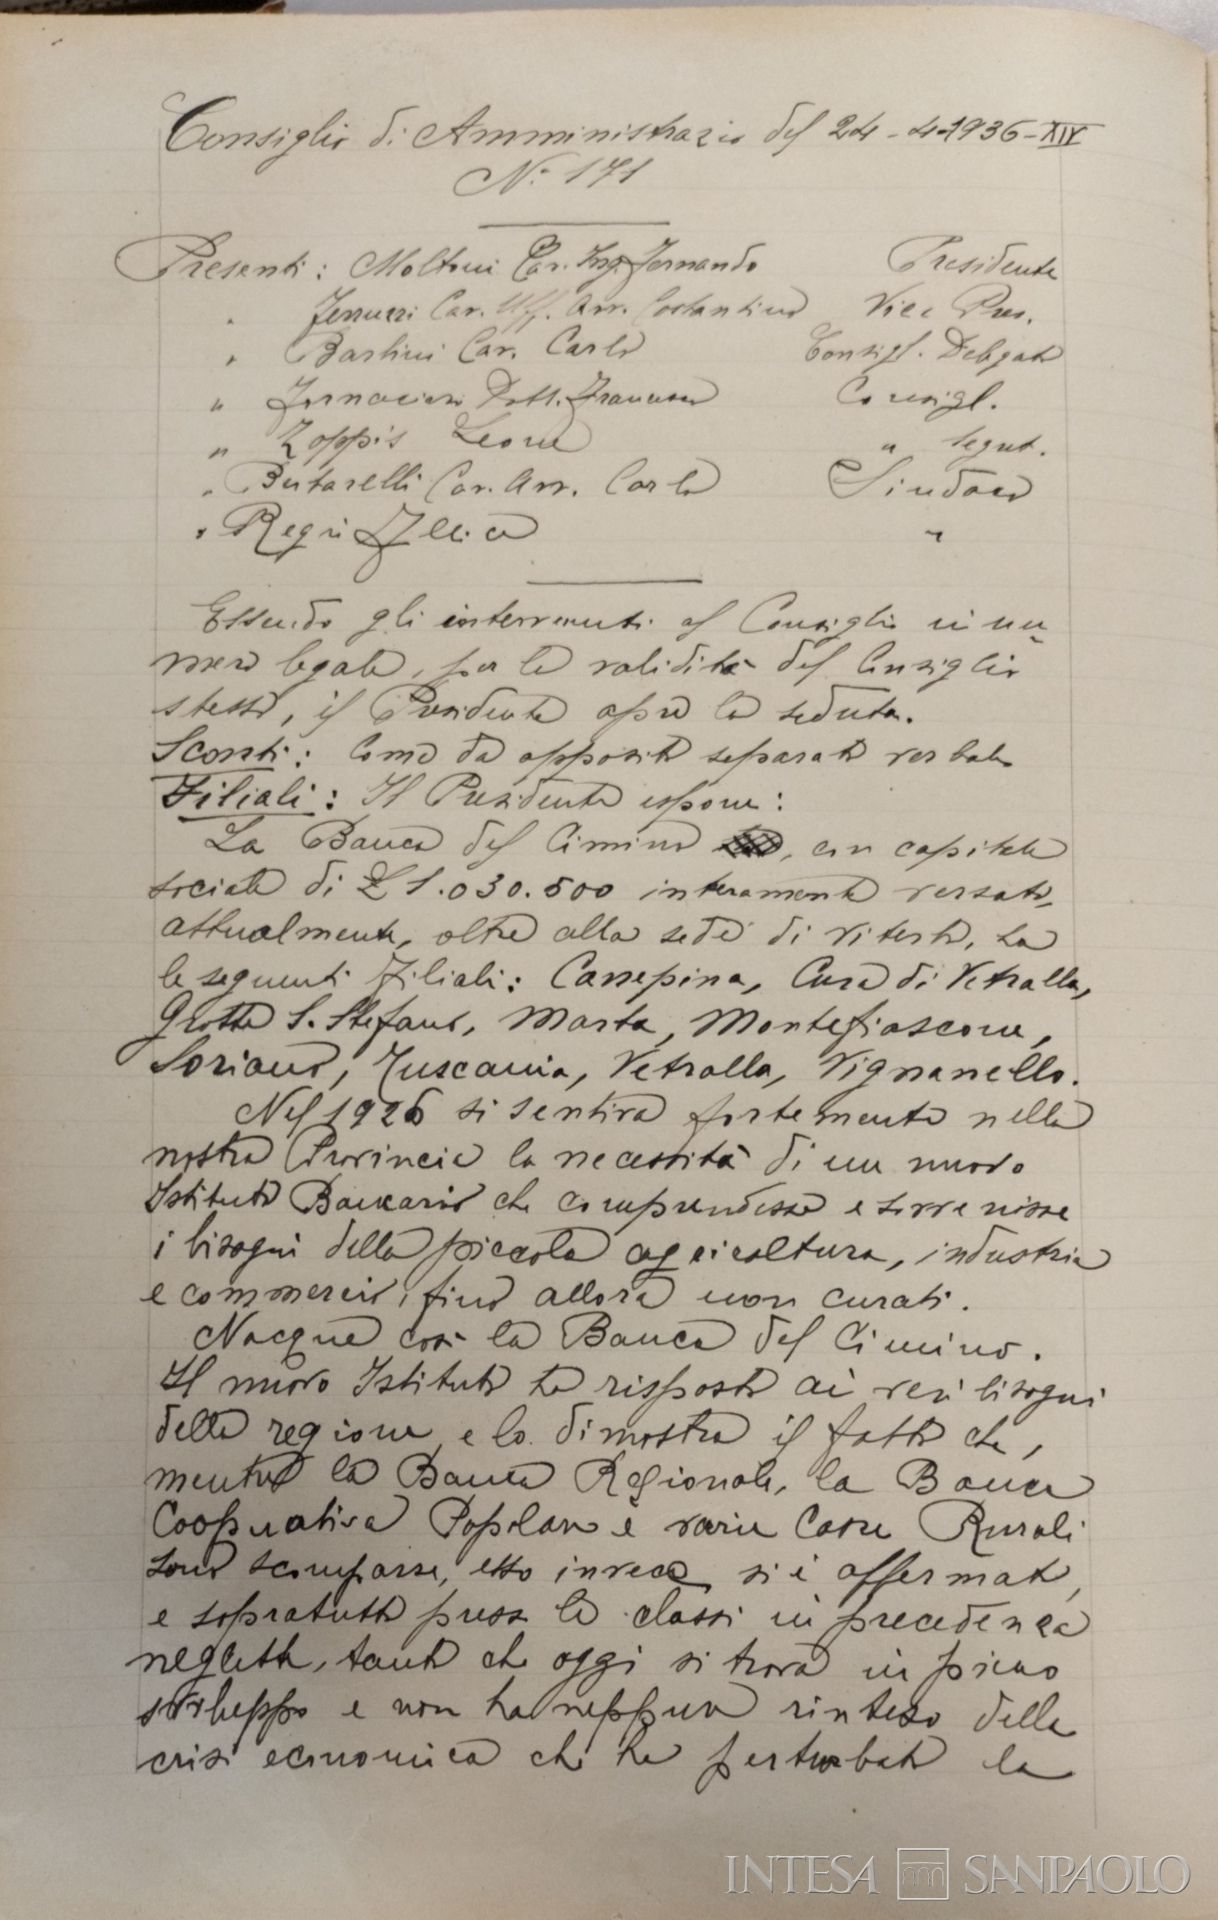 Consiglio di Amministrazio del 24-4-1936-XIV
N. 171
Presenti: Moltoni Cav. Ing. Fernando Presidente
" Ferruzzi Cav. Uff. Avv. Costantino Vice Pres.
" Bartini Cav. Carlo Consigl. Delegato
" Fornaciari Dott. Francesco Consigl.
" Zoppis Leone " Segret.
" Butarelli Cav. Avv. Carlo Sindaco
" Regii Felice "
Essendo gli intervenuti al Consiglio in nu-
mero legale, per la validità del Consiglio
stesso, il Presidente apre la seduta.
Sconti: Come da apposito separato verbale
Filiali: Il Presidente espone:
La Banca del Cimino, con capitale
sociale di £ 1.030.500 interamente versato,
attualmente, oltre alla sede di Viterbo, ha
le seguenti Filiali: Canepina, Cura di Vetralla,
Grotte S. Stefano, Marta, Montefiascone,
Soriano, Tuscania, Vetralla, Vignanello.
Nel 1926 si sentiva fortemente nella
nostra Provincia la necessità di un nuovo
Istituto Bancario che comprendesse e sovvenisse
i bisogni della piccola agricoltura, industria
e commercio, fino allora non curati.
Nacque così la Banca del Cimino.
Il nuovo Istituto ha risposto ai veri bisogni
della regione e lo dimostra il fatto che,
mentre la Banca Regionale, la Banca
Cooperativa Popolare e varie Casse Rurali
sono scomparse, esso invece si è affermato,
e sopratutto presso le classi in precedenza
neglette, tanto che oggi si trova in pieno
sviluppo e non ha neppure rinteso della
crisi economica che ha perturbato la
INTESA SANPAOLO